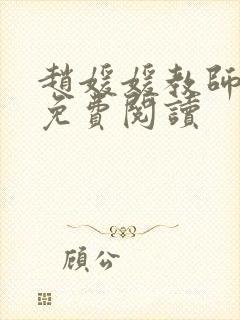 趙媛媛教師
免費閱讀
顧公